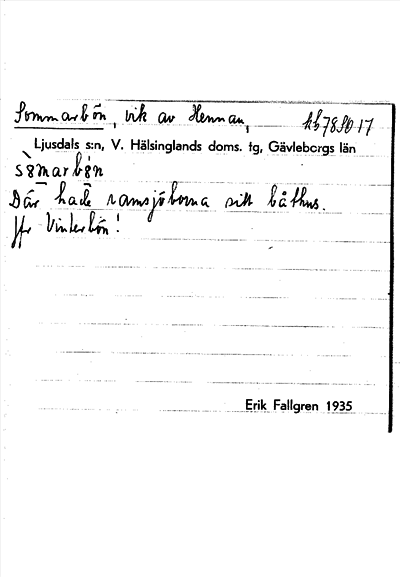 Sommarbön, vik av Hennan,
Ljusdals s:n, V. Hälsinglands doms. tg, Gävleborgs län
Där hade ramsjöborna sitt båthus.
Jfr Vinterbön!
Erik Fallgren 1935